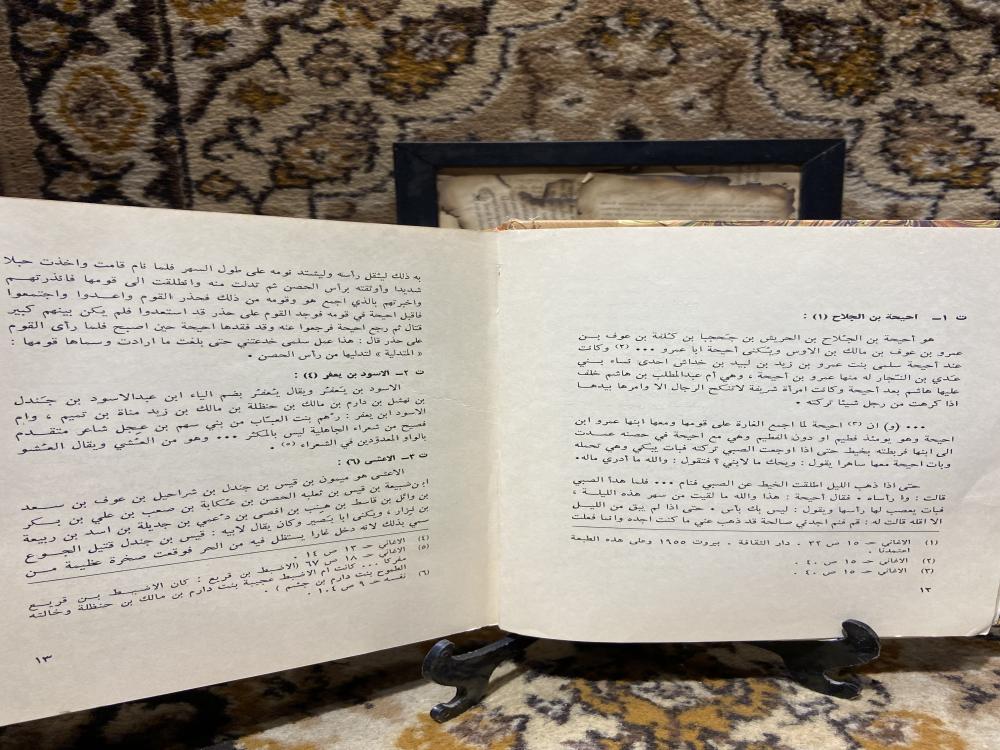 ت ١ـ احيحة بن الجلاح (١) :
هو أحيحة بن الجُلاح بن الحريش بن جَحجبا بن كُلفة بن عوف بـــن
عمرو بن عوف بن مالك بن الاوس ويكنى أحيحة ابا عمرو ٠٠٠ (٢) وكانت
عند أحيحة سلمى بنت عمرو بن زيد بن لبيد بن خداش احدى نساء بنـي
عدي بن النجار له منها عمرو بن أحيحة ، وهي أم عبدالمطلب بن هاشم خلف
عليها هاشم بعد أحيحة وكانت امرأة شريفة لاتنكح الرجال الا وامرها بيدهــا
اذا كرهت من رجل شيئا تركته ٠
٠٠٠ (و) ان (٣) احيحة لما اجمع الغارة على قومها ومعها ابنها عمرو ابن
احيحة وهو يومئذ فطيم او دون الفطيم وهي مع احيحة في حصنه عمــدت
الى ابنها فربطته بخيط حتى اذا اوجعت الصبي تركته فبات يبكي وهي تحمله
وبات احيحة معها ساهرا يقول : ويحك ما لابني ؟ فتقول : والله ما أدري ماله٠
حتى اذا ذهب الليل اطلقت الخيط عن الصبي فنام ٠٠٠ فلما هدأ الصبي
قالت : وا رأساه ٠ فقال أحيحة : هذا والله ما لقيت من سهر هذه الليلــة ،
فبات يعصب لها رأسها ويقول : ليس بك بأس ٠ حتى اذا لم يبق من الليــل
الا اقله قالت له : قم فنم اجدني صالحة قد ذهب عني ما كنت اجده وانما فعلت
(١) الاغاني حـ ١٥ ص ٣٢ ٠ دار الثقافة ٠ بيروت ١٩٥٥ وعلى هذه الطبعة
اعتمدنا ٠
(٢) الاغاني حـ ١٥ ص ٤٠ ٠
(٣) الاغاني حـ ١٥ ص ٤٠ ٠
١٢
به ذلك ليثقل رأسه وليشتد نومه على طول السهر فلما نام قامت واخذت حبلا
شديدا وأوثقته برأس الحصن ثم تدلت منه وانطلقت الى قومها فانذرتهــم
واخبرتهم بالذي اجمع هو وقومه من ذلك فحذر القوم واعــدوا واجتمعوا
فاقبل احيحة في قومه فوجد القوم على حذر قد استعدوا فلم يكن بينهم كبير
قتال ثم رجع احيحة فرجعوا عنه وقد فقدها احيحة حين اصبح فلما رأى القوم
على حذر قال : هذا عمل سلمى خدعتني حتى بلغت ما ارادت وسماها قومها :
« المتدلية » لتدليها من رأس الحصن ٠
ت ٢ـ الاسود بن يعفر (٤) :
الاسود بن يَعفُر ويقال يُعفُر بضم الياء ابن عبدالاسود بن جَندل
بن نهشل بن دارم بن مالك بن حنظلة بن مالك بن زيد مناة بن تميم ، وام
الاسود ابن يعفر : رُهم بنت العبّاب من بني سهم بن عِجل شاعر متقــدم
فصيح من شعراء الجاهلية ليس بالمكثر ٠٠٠ وهو من العُشي ويقال العُشو
بالواو المعدودين في الشعراء (٥) ٠
ت ٣ـ الاعشى (٦) :
الاعشى هو ميمون بن قيس بن جندل بن شراحيل بن عوف بن سـعد
ابن ضبيعة بن قيس بن ثعلبه الحصن بن عكابة بن صعب بن علي بن بـكر
بن وائل بن قاسط بن هِنب بن افصى بن دُعمي بن جديلة بن اسد بن ربيعة
بن نزار ، ويكنى ابا بَصير وكان يقال لابيه : قيس بن جندل قتيل الجــوع
سمي بذلك لانه دخل غارا يستظل فيه من الحر فوقعت صخرة عظيمة مـــن
(٤) الاغاني حـ ١٣ ص ١٤ ٠
(٥) الاغاني حـ ١٨ ص ٦٧ (الاضبط بن قريع : كان الاضبــط بــن قريــع
مفركا ٠٠٠ كانت أم الاضبط عجيبة بنت دارم بن مالك بن حنظلة وخالته
الطموح بنت دارم بن جشم ) ٠
(٦) نفسه حـ ٩ ص ١٠٤ ٠
١٣